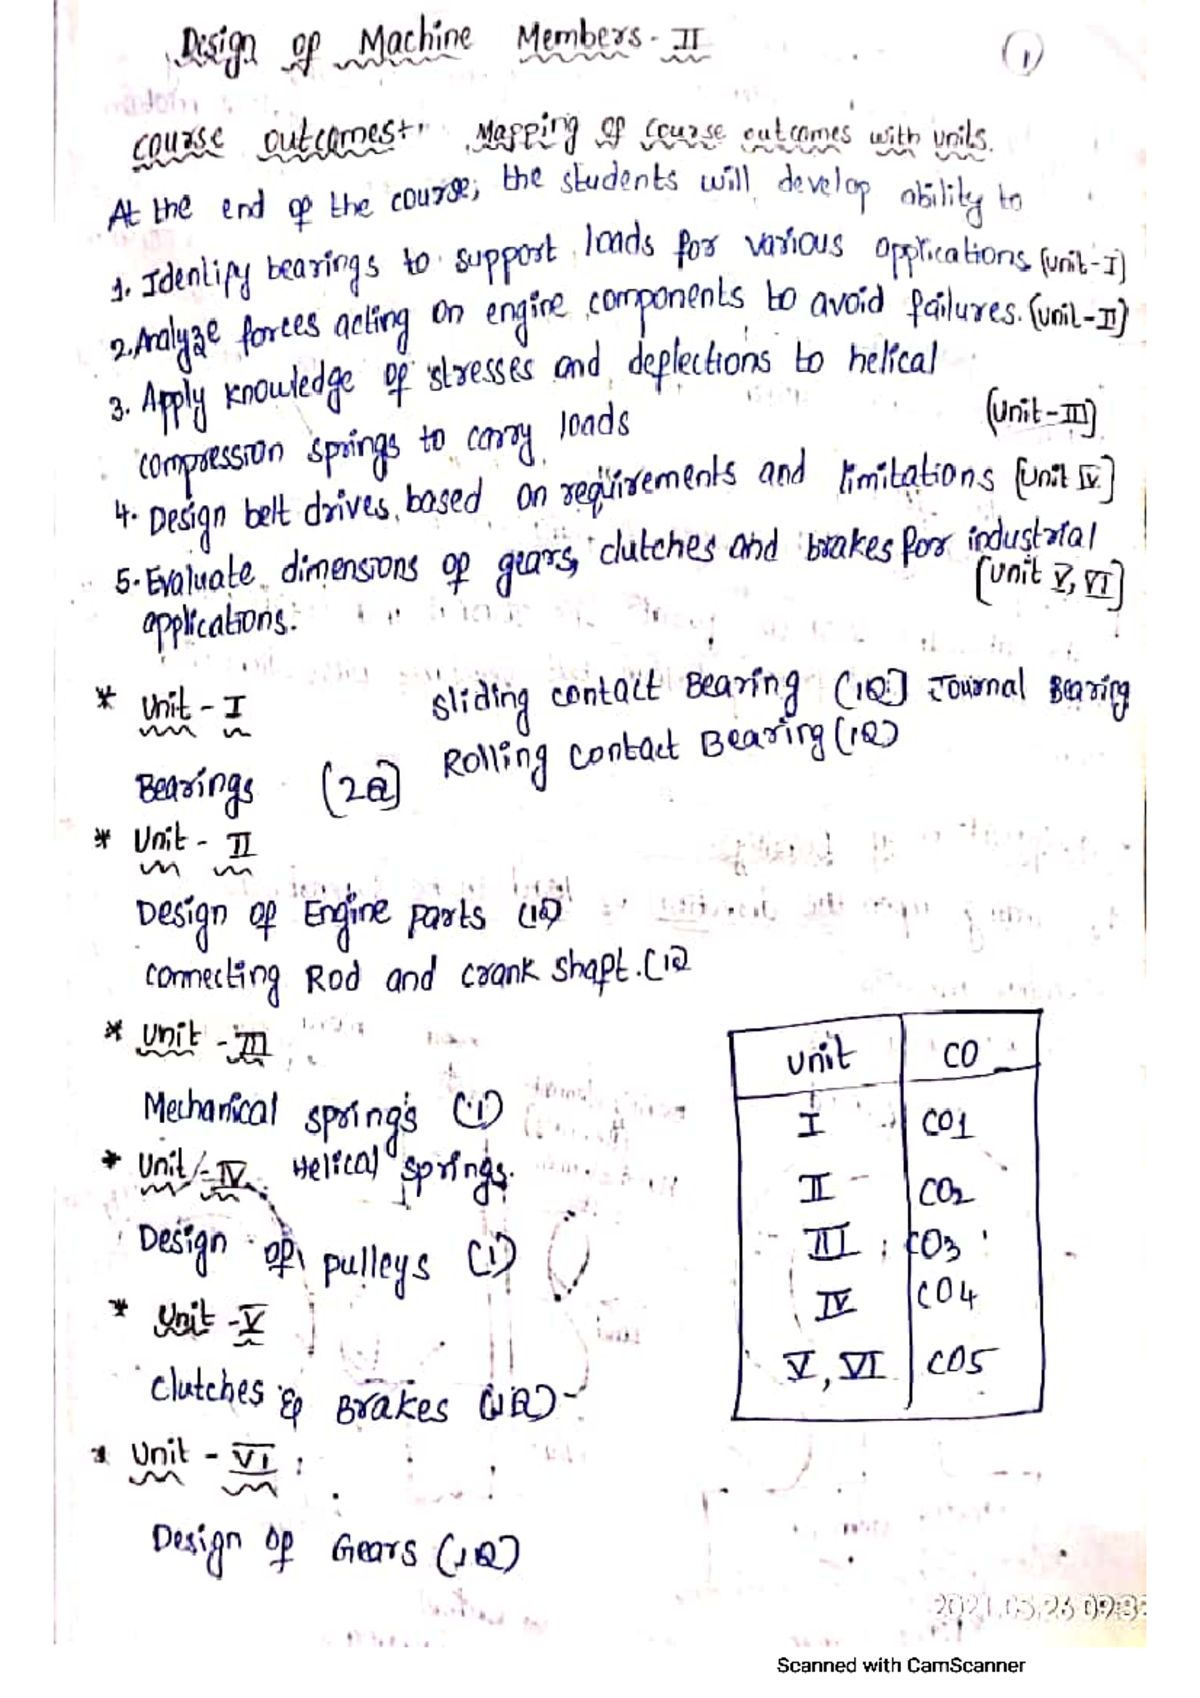 Design of Machine Members - II
1
course outcomes:- Mapping of course outcomes with units.
At the end of the course, the students will develop ability to
1. Identify bearings to support loads for various applications (unit-I)
2. Analyze forces acting on engine components to avoid failures. (unit-II)
3. Apply knowledge of stresses and deflections to helical
compression springs to carry loads (unit-III)
4. Design belt drives based on requirements and limitations (unit IV)
5. Evaluate dimensions of gears, clutches and brakes for industrial
applications. (unit V, VI)
* Unit - I
Sliding contact Bearing (1Q) Journal Bearing
Bearings (2Q) Rolling contact Bearing (1Q)
* Unit - II
Design of Engine parts (1Q)
connecting Rod and crank shaft. (1Q
* Unit - III
Mechanical springs (1)
* Unit - IV Helical springs.
Design of pulleys (1)
* Unit - V
Clutches & Brakes (1Q)
* Unit - VI :
Design of Gears (1Q)
unit CO
I CO1
II CO2
III CO3
IV CO4
V, VI CO5
Scanned with CamScanner